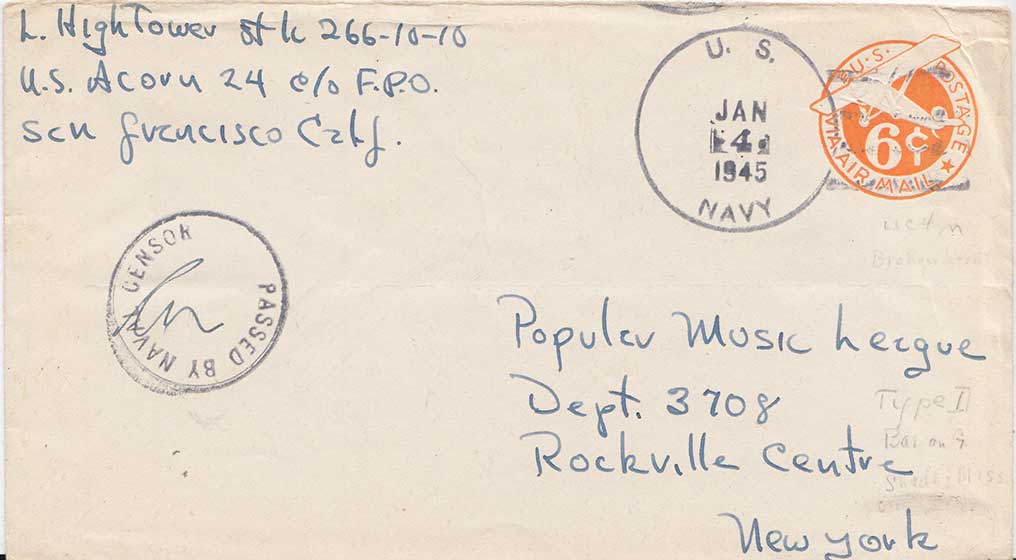 L. HighTower Stk 266-10-10
U.S. Acorn 24 c/o F.P.O.
San Francisco Calif.
U. S.
JAN
4
1945
NAVY
U.S. POSTAGE
6¢
VIA AIR MAIL
PASSED BY NAVAL CENSOR
Popular Music League
Dept. 3708
Rockville Centre
New York
UC4
Type I
Bar on G